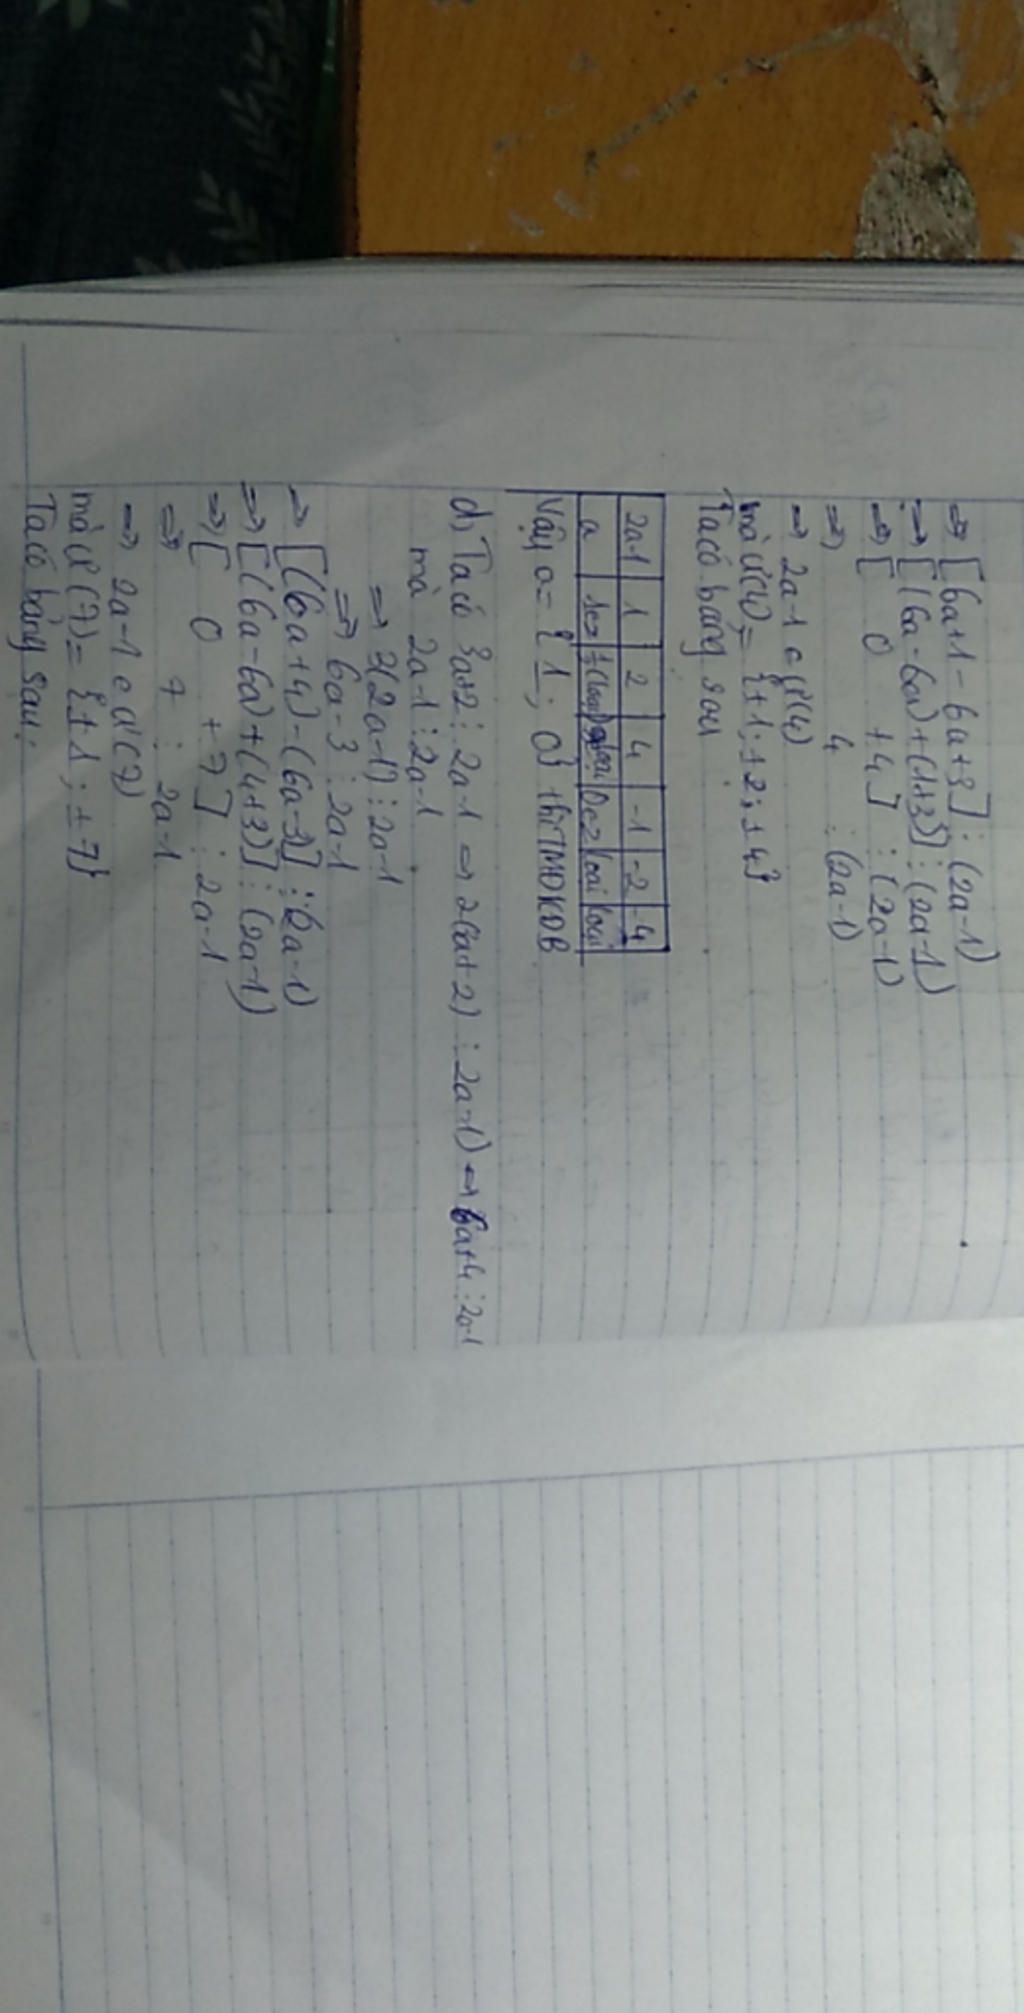 ⇒ [6a+1 - 6a+3] ⋮ (2a-1)
⇒ [(6a-6a)+(1+3)] ⋮ (2a-1)
⇒ [ 0 +4] ⋮ (2a-1)
⇒ 4 ⋮ (2a-1)
⇒ 2a-1 ∈ Ư(4)
mà Ư(4) = {±1; ±2; ±4}
Ta có bảng sau
2a-1 1 2 4 -1 -2 -4
a 1∈Z (loại) loại 0∈Z loại loại
Vậy a = {1; 0} thì TMĐKĐB
d) Ta có 3a+2 ⋮ 2a-1 ⇒ 2(3a+2) ⋮ 2a-1) ⇒ 6a+4 ⋮ 2a-1
mà 2a-1 ⋮ 2a-1
⇒ 3(2a-1) ⋮ 2a-1
⇒ 6a-3 ⋮ 2a-1
⇒ [(6a+4)-(6a-3] ⋮ (2a-1)
⇒ [(6a-6a)+(4+3)] ⋮ (2a-1)
⇒ [ 0 +7] ⋮ 2a-1
⇒ 7 ⋮ 2a-1
⇒ 2a-1 ∈ Ư(7)
mà Ư(7) = {±1; ±7}
Ta có bảng sau: